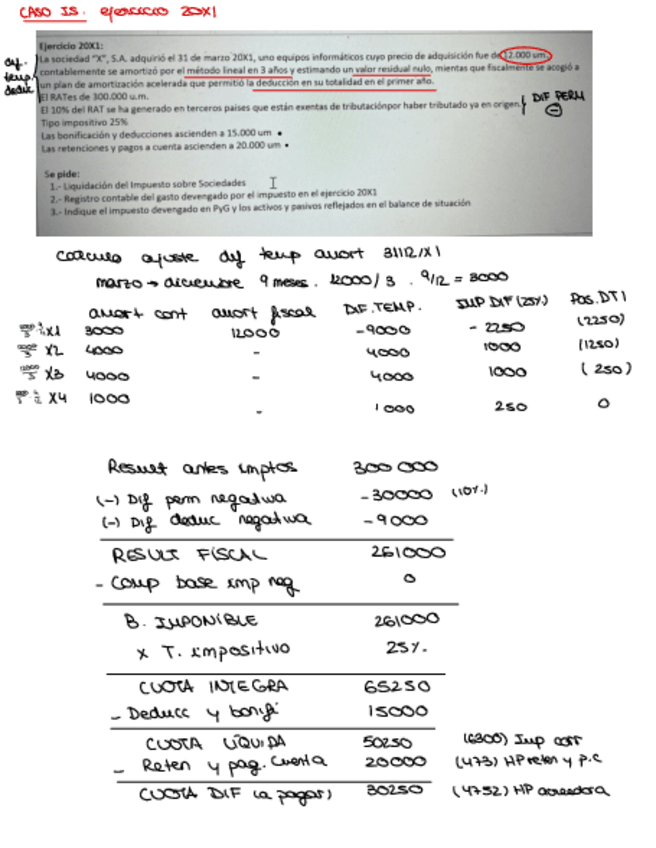 CASO IS. ejercicio 20X1
Ejercicio 20X1:
La sociedad "X", S.A. adquirió el 31 de marzo 20X1, uno equipos informáticos cuyo precio de adquisición fue de 12.000 um.
contablemente se amortizó por el método lineal en 3 años y estimando un valor residual nulo, mientas que fiscalmente se acogió a
un plan de amortización acelerada que permitió la deducción en su totalidad en el primer año.
El RATes de 300.000 u.m.
El 10% del RAT se ha generado en terceros paises que están exentas de tributaciónpor haber tributado ya en origen.
Tipo impositivo 25%
Las bonificación y deducciones ascienden a 15.000 um
Las retenciones y pagos a cuenta ascienden a 20.000 um
dif.
temp
deduc
DIF PERM
-
Se pide:
1.- Liquidación del Impuesto sobre Sociedades
2.- Registro contable del gasto devengado por el impuesto en el ejercicio 20X1
3.- Indique el impuesto devengado en PyG y los activos y pasivos reflejados en el balance de situación
Calculo ajuste dif temp amort 31/12/X1
marzo → diciembre 9 meses. 12000/3 . 9/12 = 3000
amort cont amort fiscal DIF. TEMP. IMP DIF (25%) Pas. DTI
X1 3000 12000 -9000 - 2250 (2250)
X2 4000 - 4000 1000 (1250)
X3 4000 - 4000 1000 (250)
X4 1000 - 1000 250 0
Result antes imptos 300 000
(-) Dif perm negativa -30000 (10%)
(-) Dif deduc negativa -9000
RESULT FISCAL 261000
- Comp base imp neg 0
B. IMPONIBLE 261000
x T. impositivo 25%
CUOTA INTEGRA 65250
- Deducc y bonif 15000
CUOTA LÍQUIDA 50250 (6300) Imp corr
- Reten y pag. Cuenta 20000 (473) HP reten y P.C
CUOTA DIF (a pagar) 30250 (4752) HP acreedora